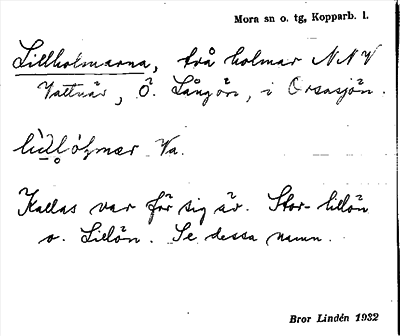 Mora sn o. tg, Kopparb. l.
Lillholmarna, två holmar NNV
Vattnäs, Ö. Långön, i Orsasjön.
Va.
Kallas var för sig äv. Stor-lillön
o. Lillön. Se dessa namn.
Bror Lindén 1932